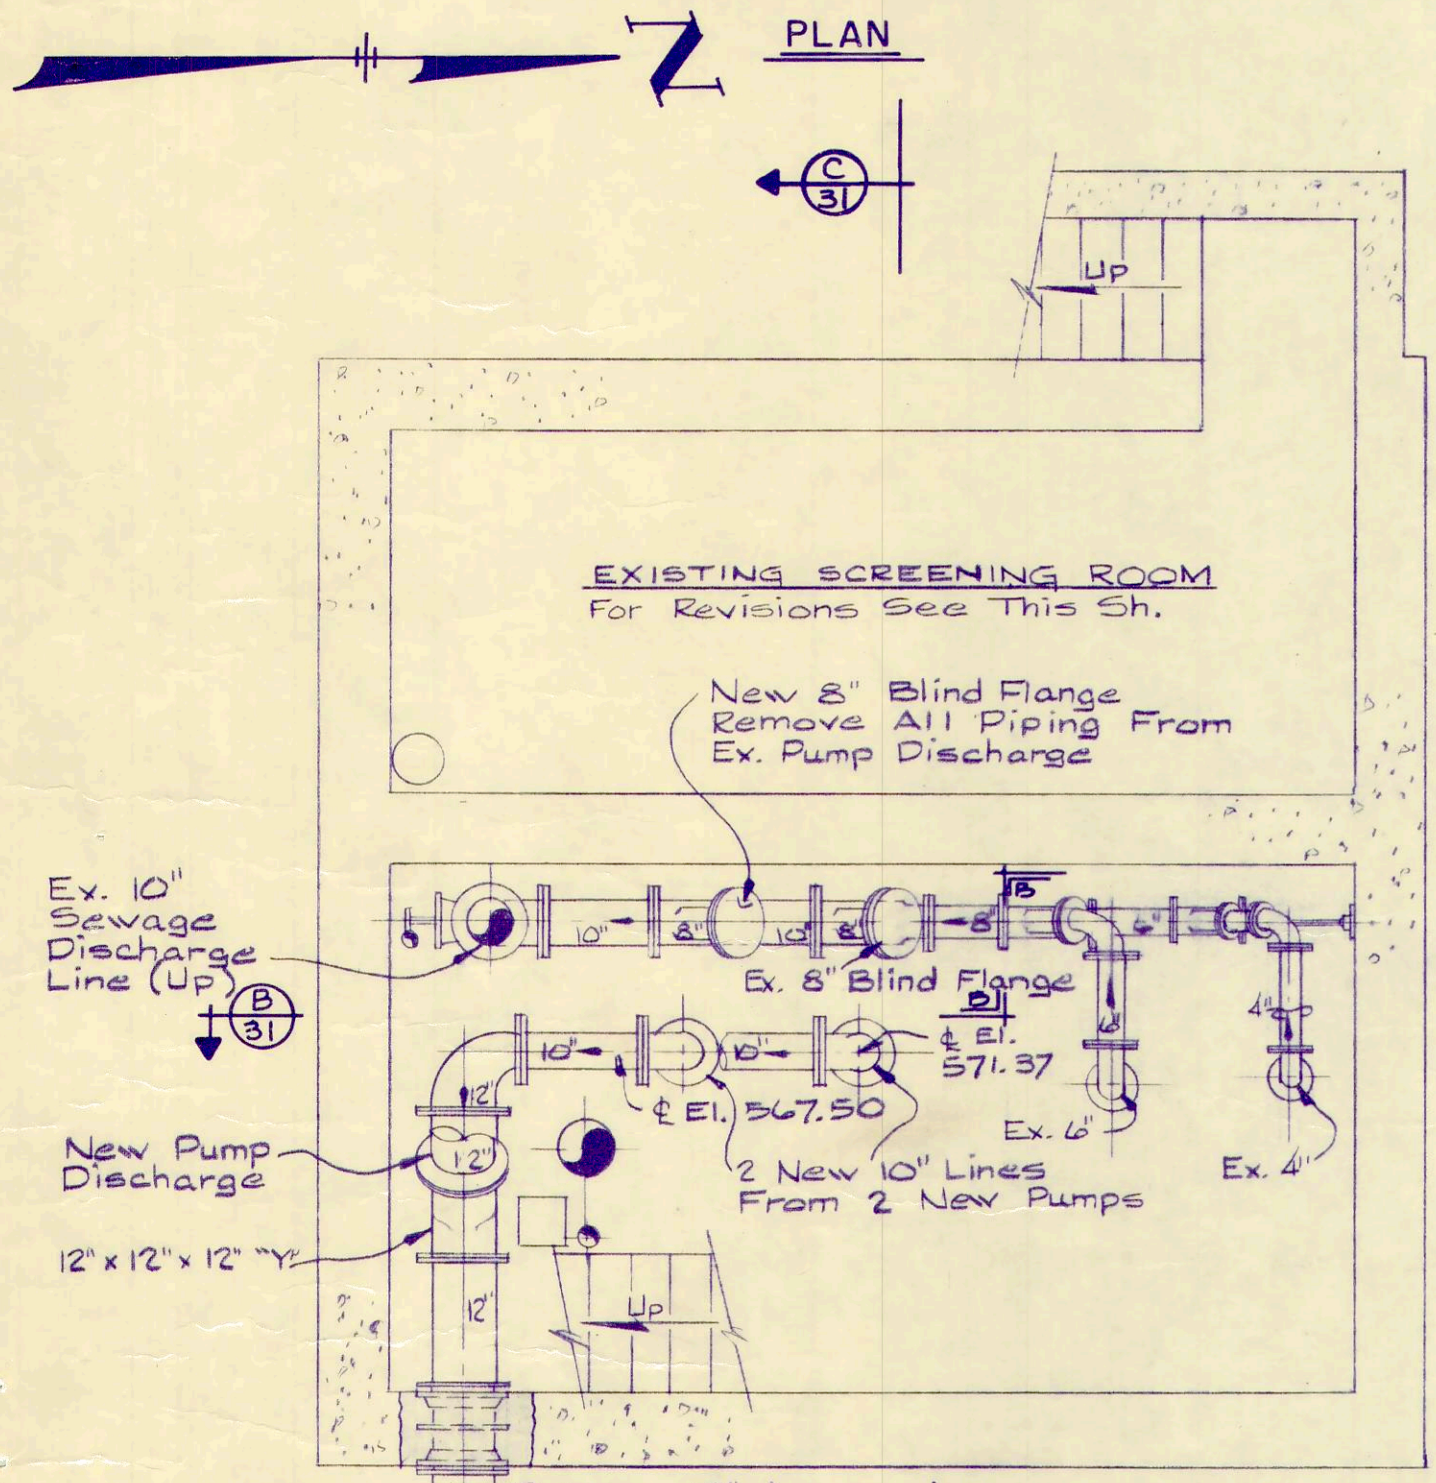 N
PLAN
C
31
Up
EXISTING SCREENING ROOM
For Revisions See This Sh.
New 8" Blind Flange
Remove All Piping From
Ex. Pump Discharge
Ex. 10"
Sewage
Discharge
Line (Up)
B
31
10"
8"
10"
8"
8"
B
6"
Ex. 8" Blind Flange
B
6"
4"
10"
10"
℄ El.
571.37
℄ El. 567.50
12"
12"
Ex. 6"
Ex. 4"
New Pump
Discharge
2 New 10" Lines
From 2 New Pumps
12" x 12" x 12" "Y"
12"
Up